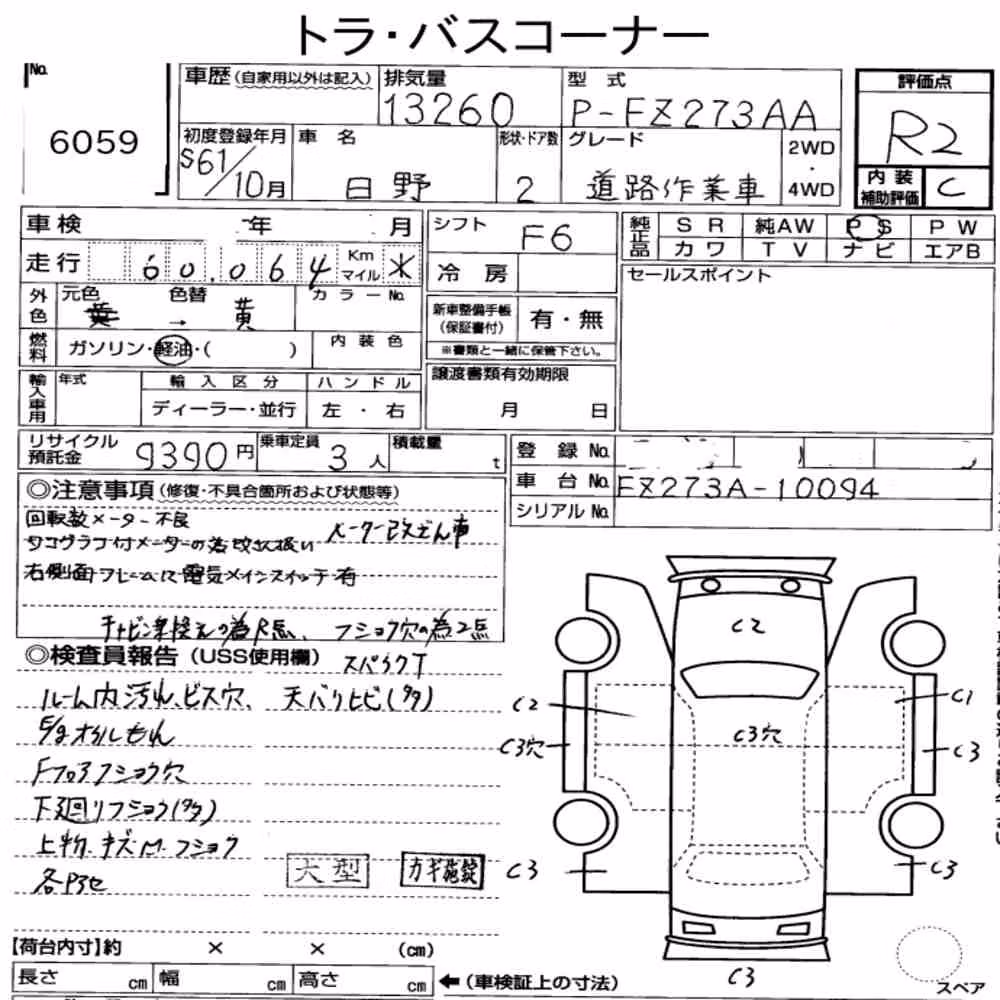 トラ・バスコーナー
No.
6059
車歴(自家用以外は記入)
排気量
13260
型 式
P-FZ273AA
評価点
R2
内装
補助評価
C
初度登録年月
S61/10月
車 名
日野
形状・ドア数
2
グレード
道路作業車
2WD
・
4WD
車検
年
月
走行
60,064
Km
マイル
外色
元色
黄
色替
→
黄
カラーNo.
燃料
ガソリン・軽油・( )
内装色
輸入車用
年式
輸入区分
ディーラー・並行
ハンドル
左・右
シフト
F6
冷房
新車整備手帳
(保証書付)
有・無
※書類と一緒に保管下さい。
譲渡書類有効期限
月 日
純正品
SR
純AW
PS
PW
カワ
TV
ナビ
エアB
セールスポイント
リサイクル
預託金
9390円
乗車定員
3人
積載量
t
登録No.
車台No.
FZ273A-10094
シリアルNo.
◎注意事項(修復・不具合箇所および状態等)
回転数メーター不良
タコグラフ付メーターの為改ざん扱い
メーター改ざん車
右側面フレームに電気メインスイッチ有
キャビン乗換えの為R点、フショウ穴の為2点
◎検査員報告(USS使用欄)
ルーム内汚れ、ビス穴、天バリヒビ(多)
E/gオイルもれ
Fフロアフショウ穴
下廻りフショウ(多)
上物、キズ
各P
大型
カギ施錠
C2
C2
C1
C3穴
C3穴
C3
C3
C3
C3
【荷台内寸】約 × × (cm)
長さ cm
幅 cm
高さ cm
←(車検証上の寸法)
スペア